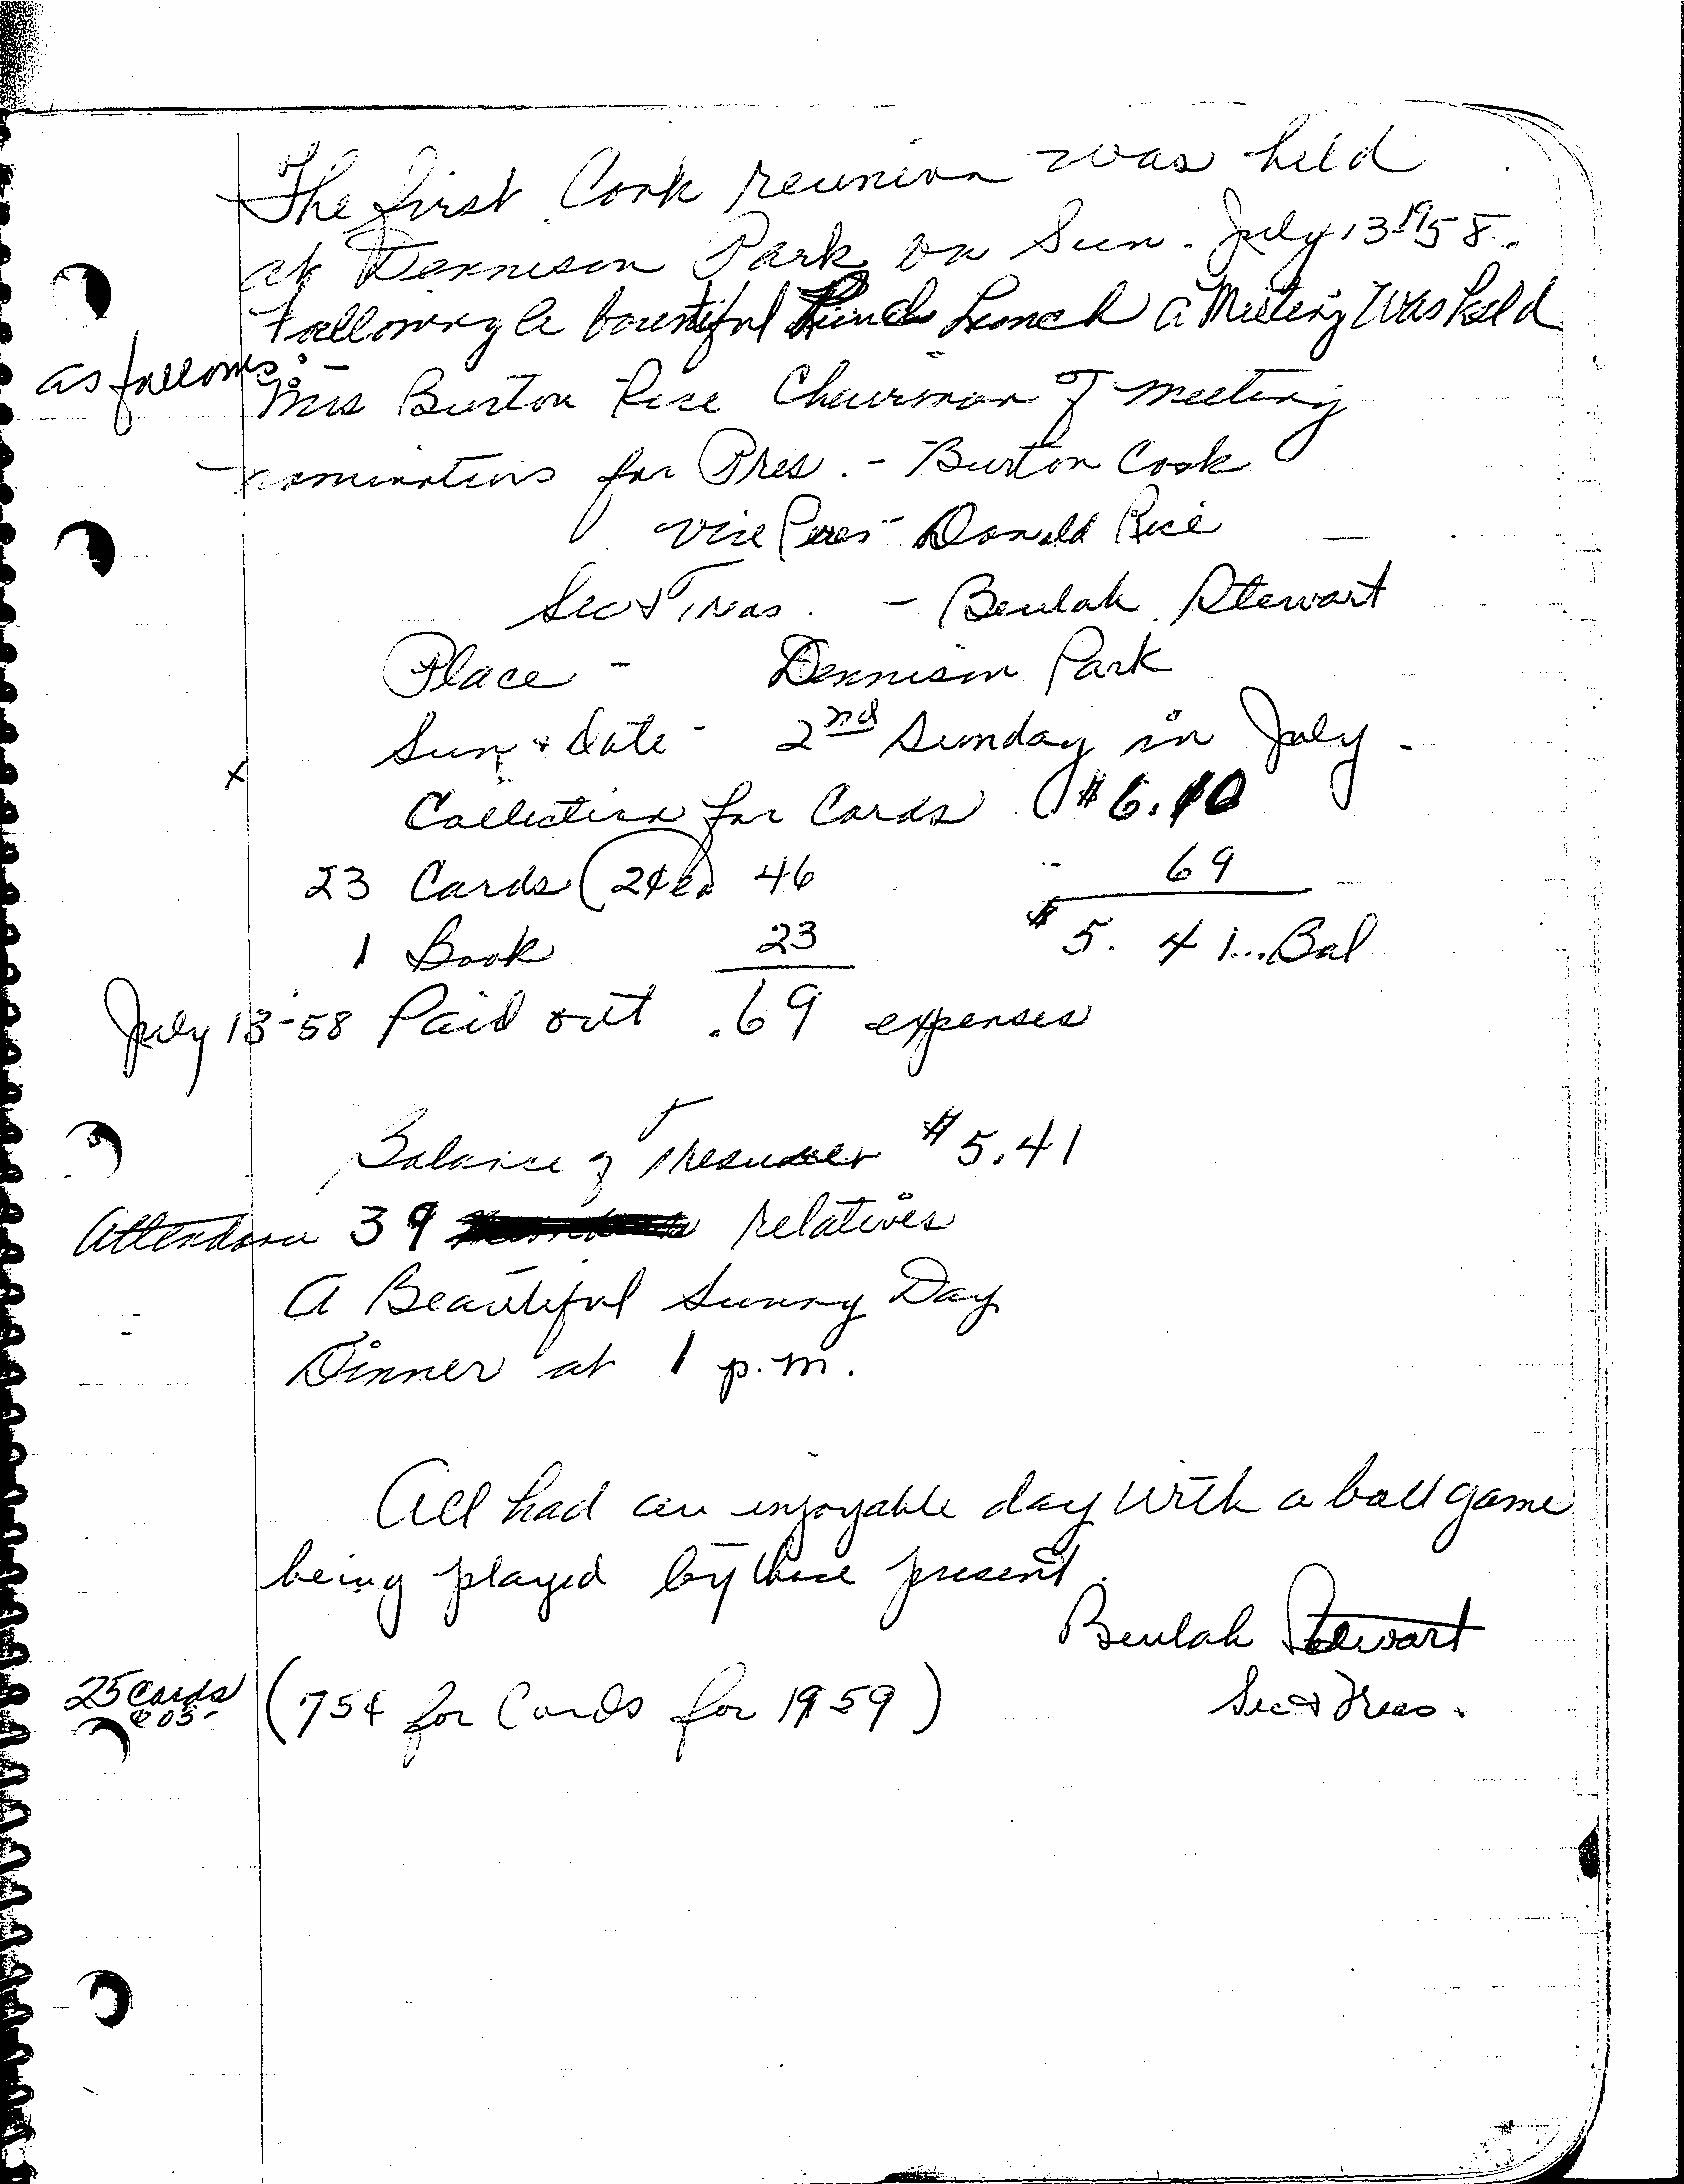 The first Cook reunion was held
at Dennison Park on Sun. July 13 1958.
Following a bountiful Lunch a Meeting Was held
as follows:-
Mrs Burton Rice Chairman of meeting
nominations for Pres. - Burton Cook
Vice Pres - Donald Rice
Sec & Treas. - Beulah Stewart
Place - Dennison Park
Sun & date - 2nd Sunday in July -
x
Collection for Cards $6.10
23 Cards (2¢ ea) 46 69
1 Book 23 $5.41... Bal
July 13-58 Paid out .69 expenses
Balance of Tresurer $5.41
Attendance 39 relatives
A Beautiful Sunny Day
Dinner at 1 p.m.
All had an enjoyable day with a ball game
being played by those present.
Beulah Stewart
25 Cards (75¢ for Cards for 1959) Sec & Treas.